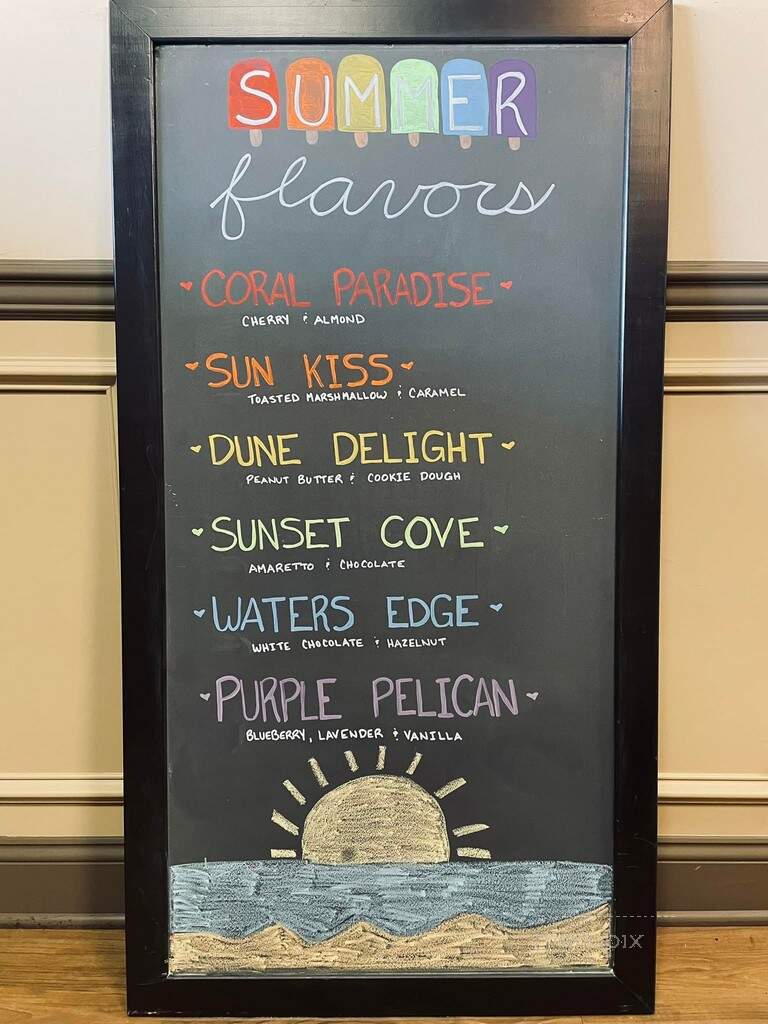 SUMMER
flavors
CORAL PARADISE
CHERRY & ALMOND
SUN KISS
TOASTED MARSHMALLOW & CARAMEL
DUNE DELIGHT
PEANUT BUTTER & COOKIE DOUGH
SUNSET COVE
AMARETTO & CHOCOLATE
WATERS EDGE
WHITE CHOCOLATE & HAZELNUT
PURPLE PELICAN
BLUEBERRY, LAVENDER & VANILLA